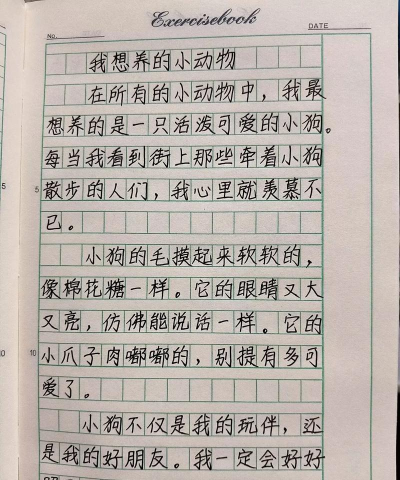 Exercisebook
No.
DATE
我想养的小动物
在所有的小动物中，我最
想养的是一只活泼可爱的小狗。
每当我看到街上那些牵着小狗
5
5
散步的人们，我心里就羡慕不
已。
小狗的毛摸起来软软的，
像棉花糖一样。它的眼睛又大
又亮，仿佛能说话一样。它的
10
小爪子肉嘟嘟的，别提有多可
爱了。
小狗不仅是我的玩伴，还
是我的好朋友。我一定会好好